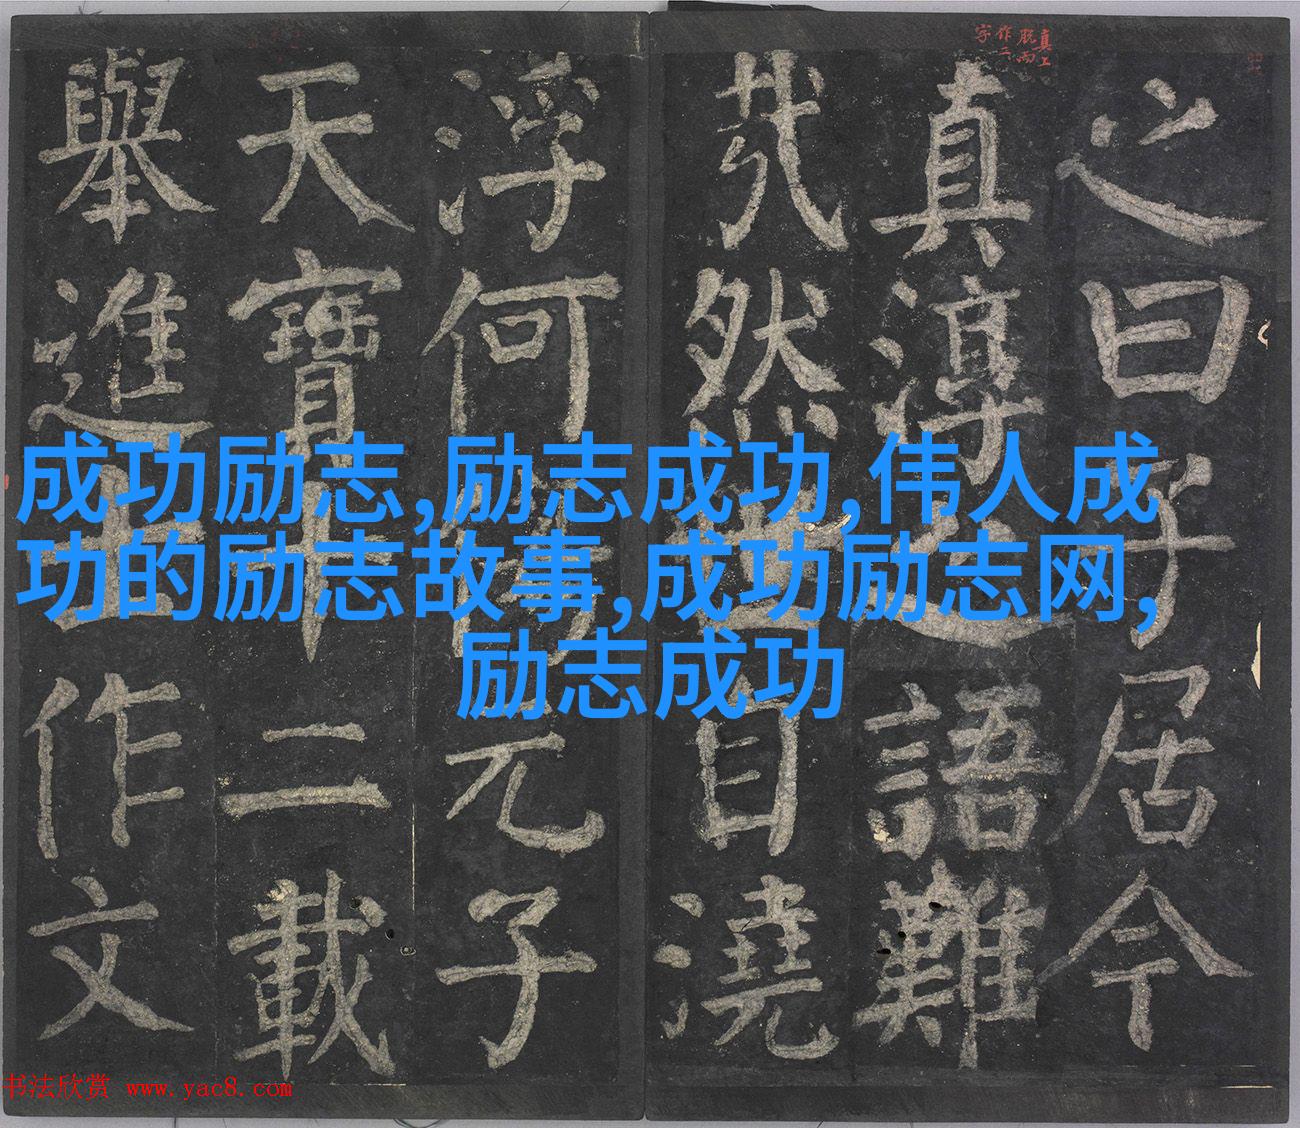 成功励志,励志成功,伟人成
功的励志故事,成功励志网,
励志成功
真上脱而作二字
之曰子居今
真淳之語難
哉然世自澆
浮何傷元子
天寶十二載
舉進士作文
书法欣赏 www.yac8.com